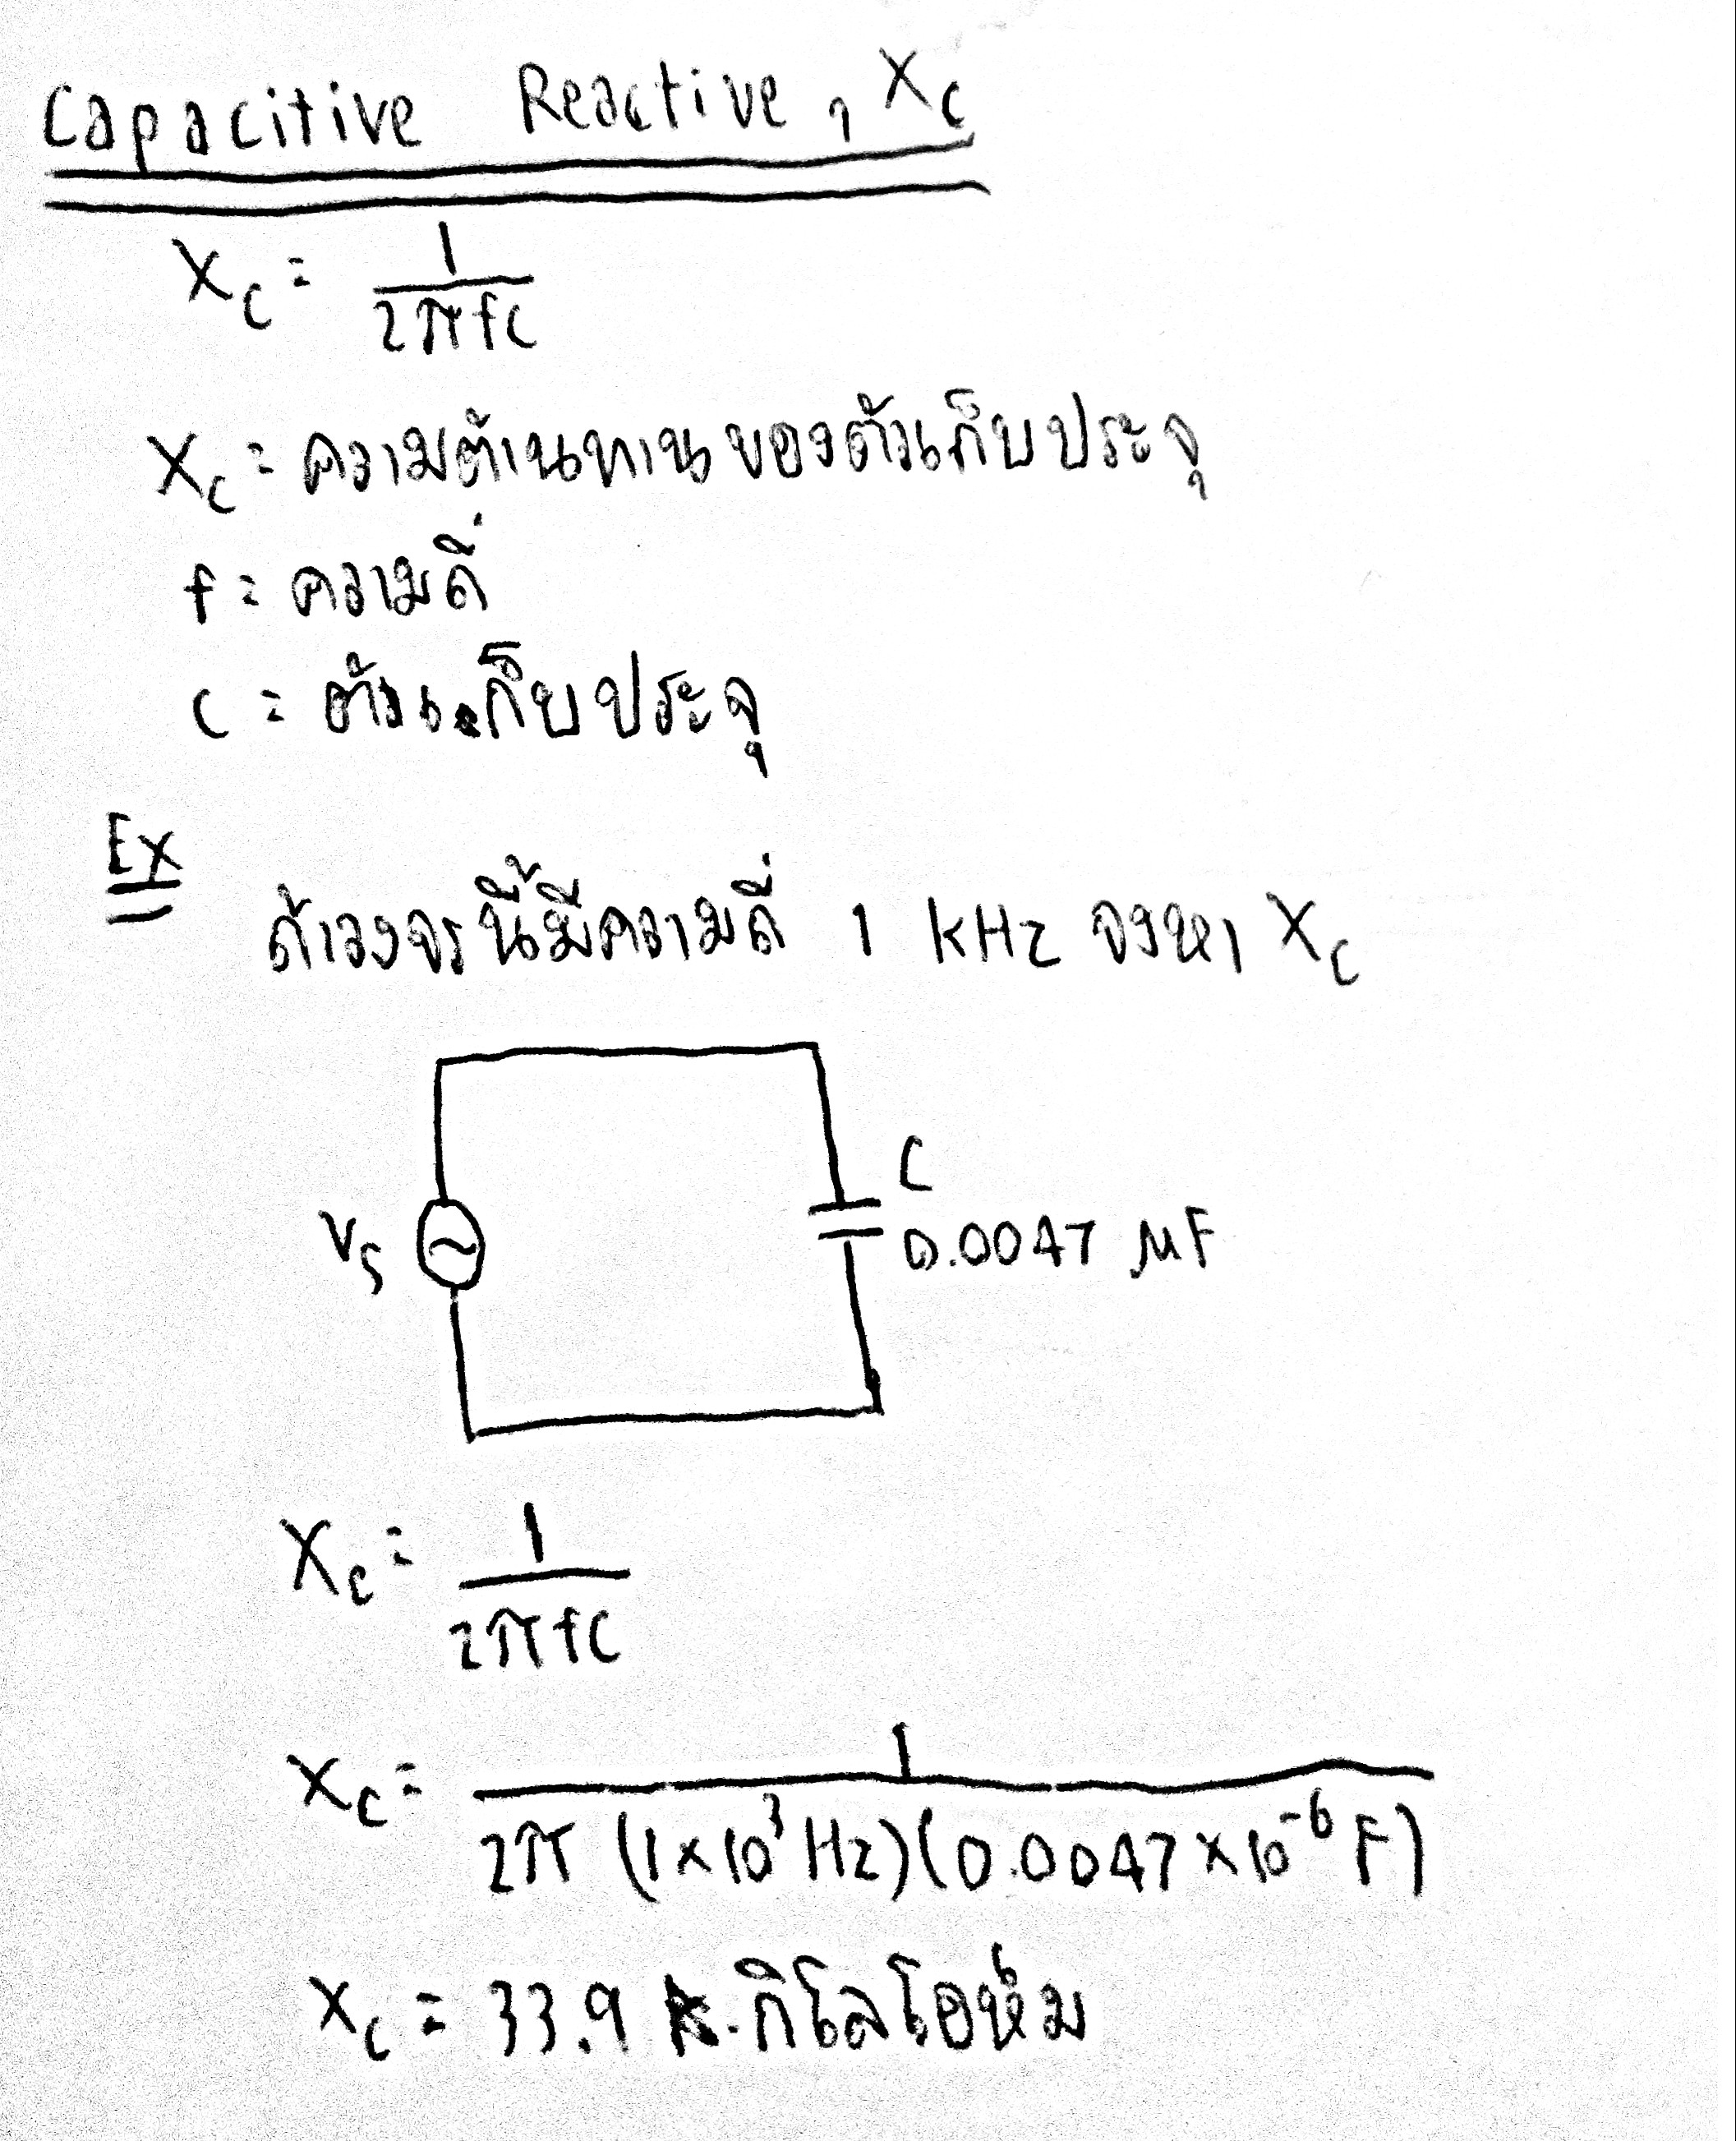 Capacitive Reactive, Xc
Xc = 1
2πfC
Xc = ความต้านทานของตัวเก็บประจุ
f = ความถี่
C = ตัวเก็บประจุ
Ex
ถ้าวงจรนี้มีความถี่ 1 kHz จงหา Xc
C
Vs
0.0047 μF
Xc = 1
2πfC
Xc = 1
2π (1×10³ Hz)(0.0047×10⁻⁶ F)
Xc = 33.9 กิโลโอห์ม